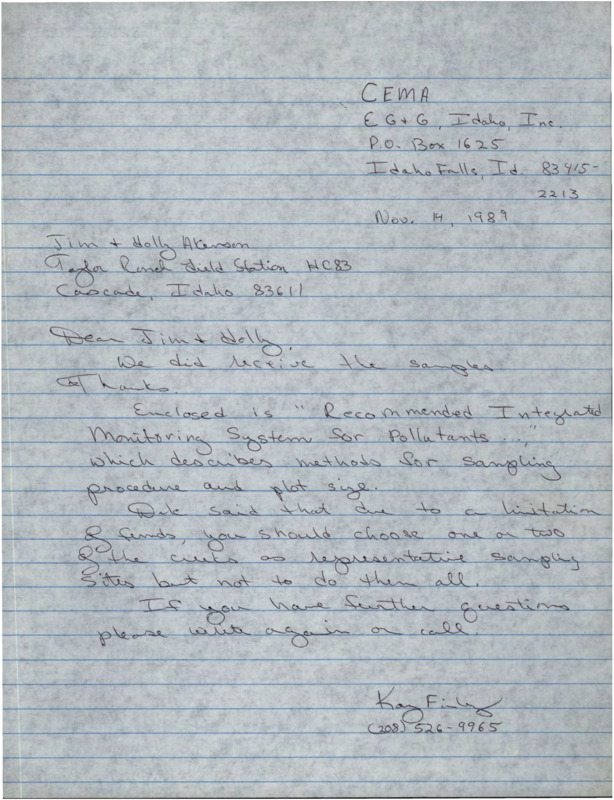 CEMA
EG+G, Idaho, Inc.
P.O. Box 1625
Idaho Falls, Id. 83415-
2213
Nov. 14, 1989
Jim + Holly Akenson
Taylor Ranch Field Station HC83
Cascade, Idaho 83611
Dear Jim + Holly,
We did receive the samples
Thanks.
Enclosed is "Recommended Integrated
Monitoring System for Pollutants...,"
which describes methods for sampling
procedure and plot size.
said that due to a limitation
of funds, you should choose one or two
of the creeks as representative sampling
sites but not to do them all.
If you have further questions
please write again or call.
Kay Finley
(208) 526-9965